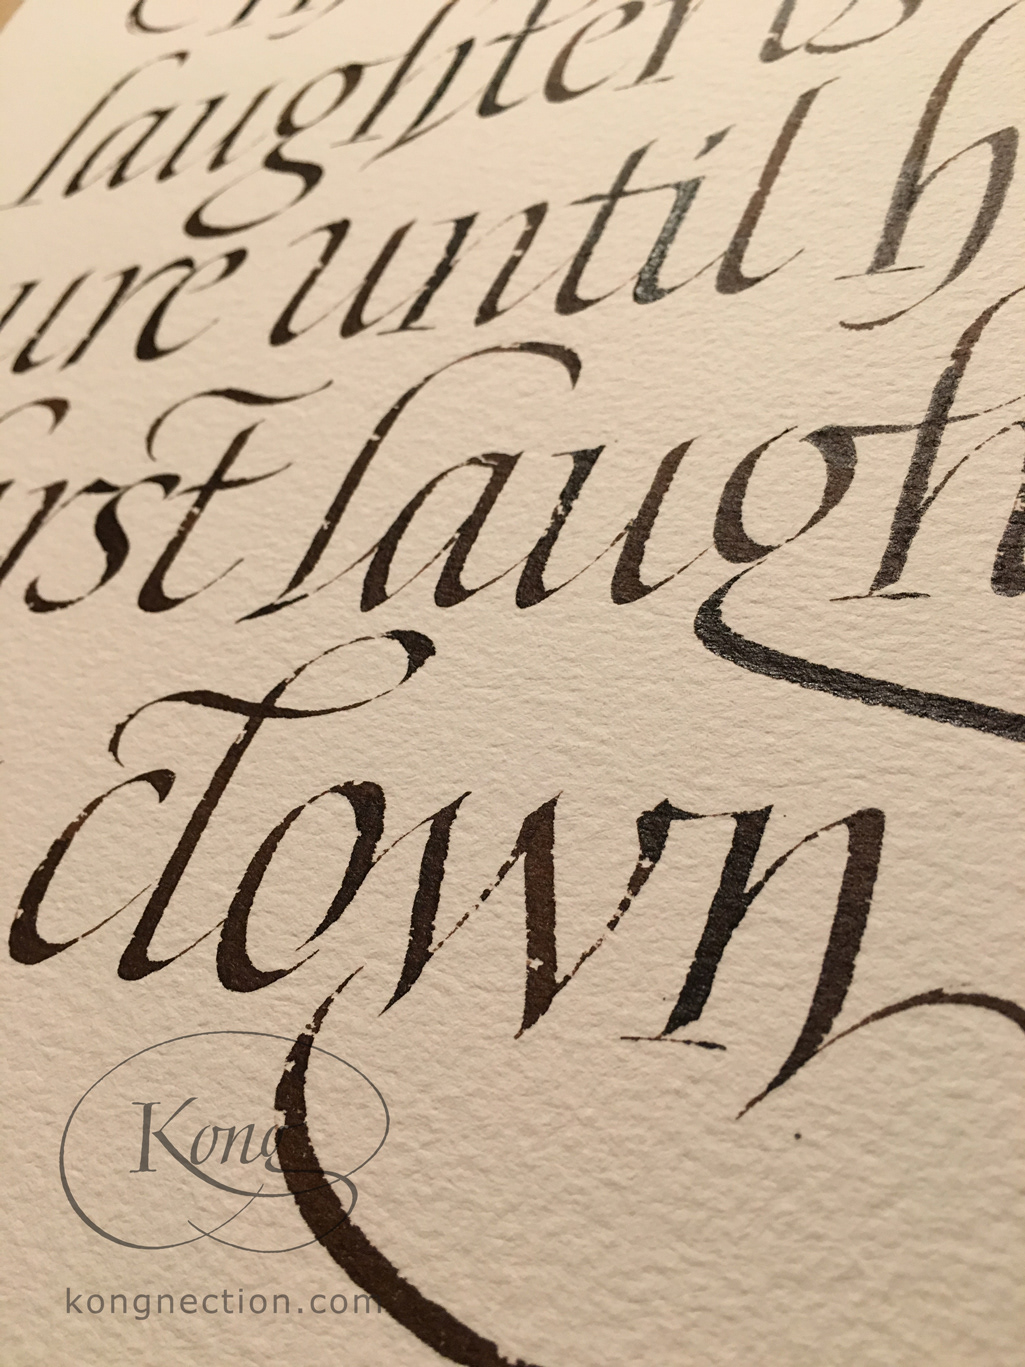 laughter is
ure until h
rst laugh
down
Kong
kongnection.com